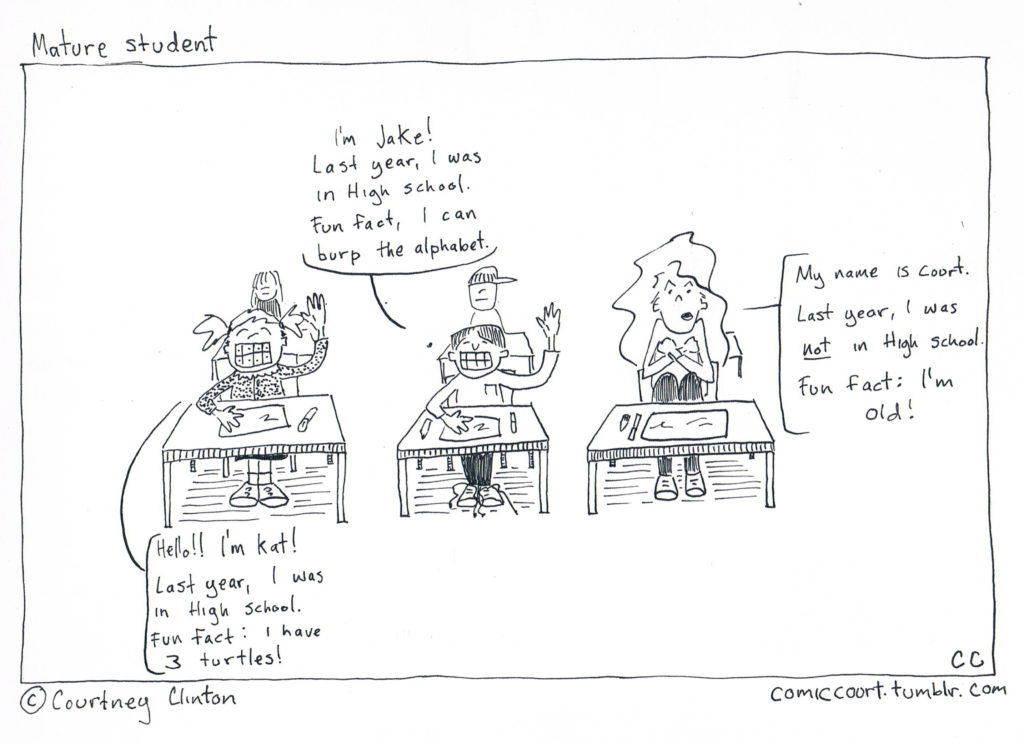 Mature student
I'm Jake!
Last year, I was
in High school.
Fun fact, I can
burp the alphabet.
My name is Court.
Last year, I was
not in High school.
Fun fact: I'm
old!
Hello!! I'm Kat!
Last year, I was
in High school.
Fun fact: I have
3 turtles!
CC
© Courtney Clinton
comiccourt.tumblr.com